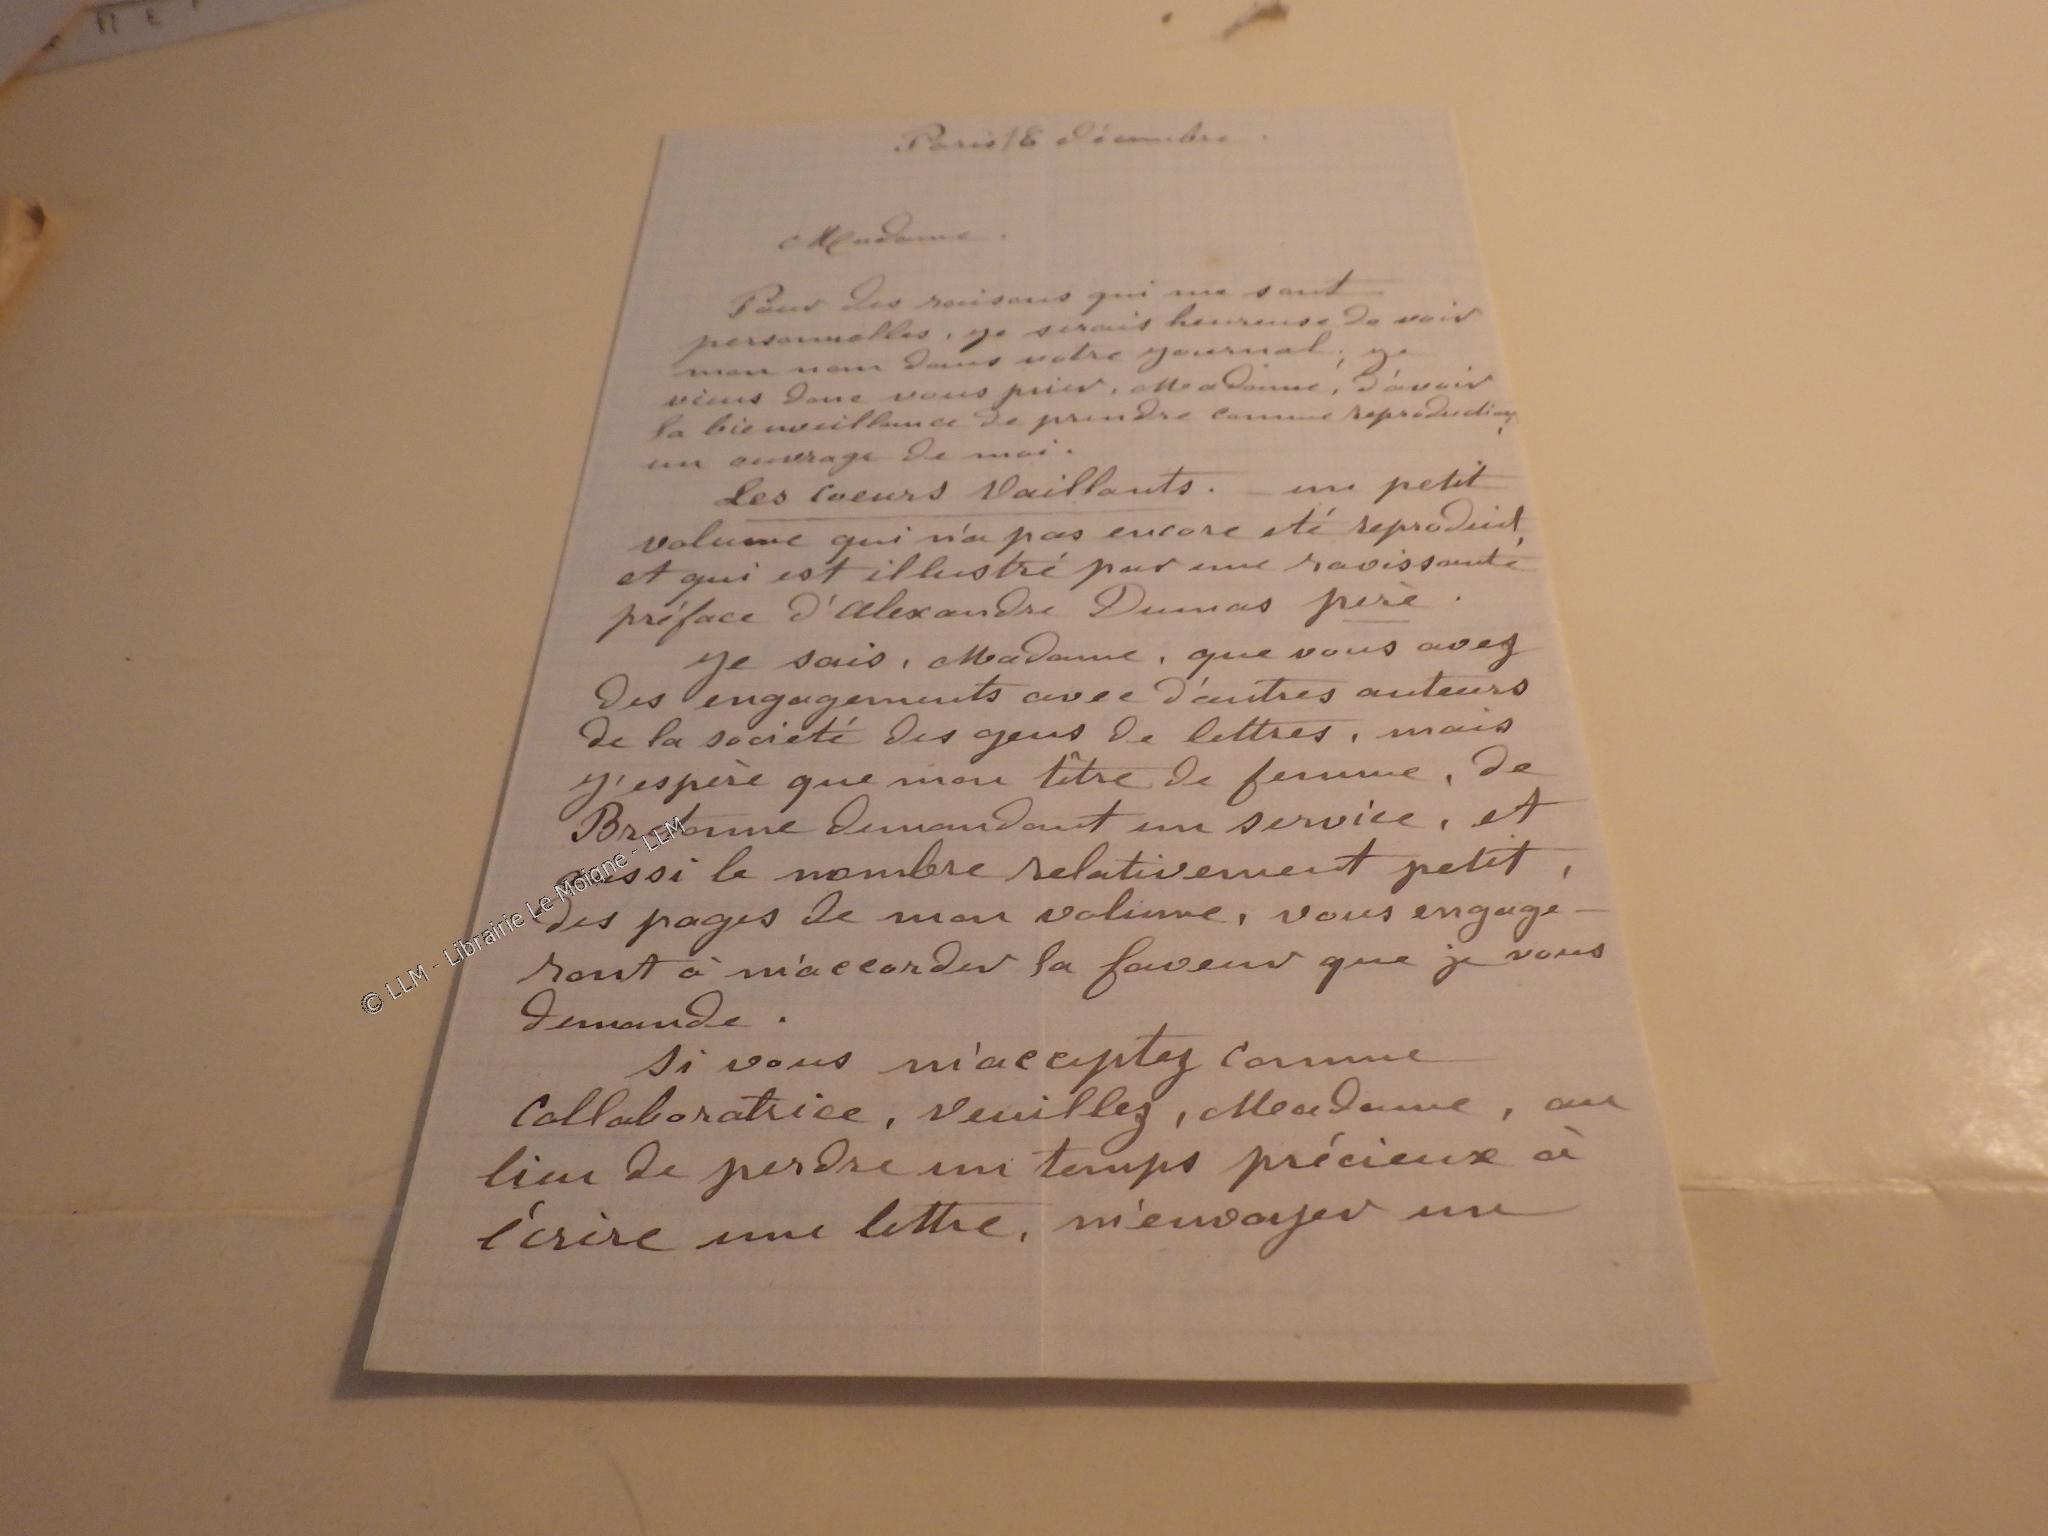 Paris 18 décembre.
Madame.
Pour des raisons qui me sont
personnelles, je serais heureuse de voir
mon nom dans votre journal; je
viens donc vous prier, Madame, d'avoir
la bienveillance de prendre comme reproduction,
un ouvrage de moi.
Les Coeurs Vaillants. - un petit
volume qui n'a pas encore eté reproduit,
et qui est illustré par une ravissante
préface d'Alexandre Dumas père.
Je sais, Madame, que vous avez
des engagements avec d'autres auteurs
de la société des gens de lettres, mais
j'espère que mon tître de femme, de
Bretonne demandant un service, et
aussi le nombre relativement petit,
des pages de mon volume, vous engage-
ront à m'accorder la faveur que je vous
demande.
Si vous m'acceptez comme
collaboratrice, veuillez, Madame, au
lieu de perdre un temps précieux à
écrire une lettre, m'envoyer un
© LLM - Librairie Le Moigne - LLM